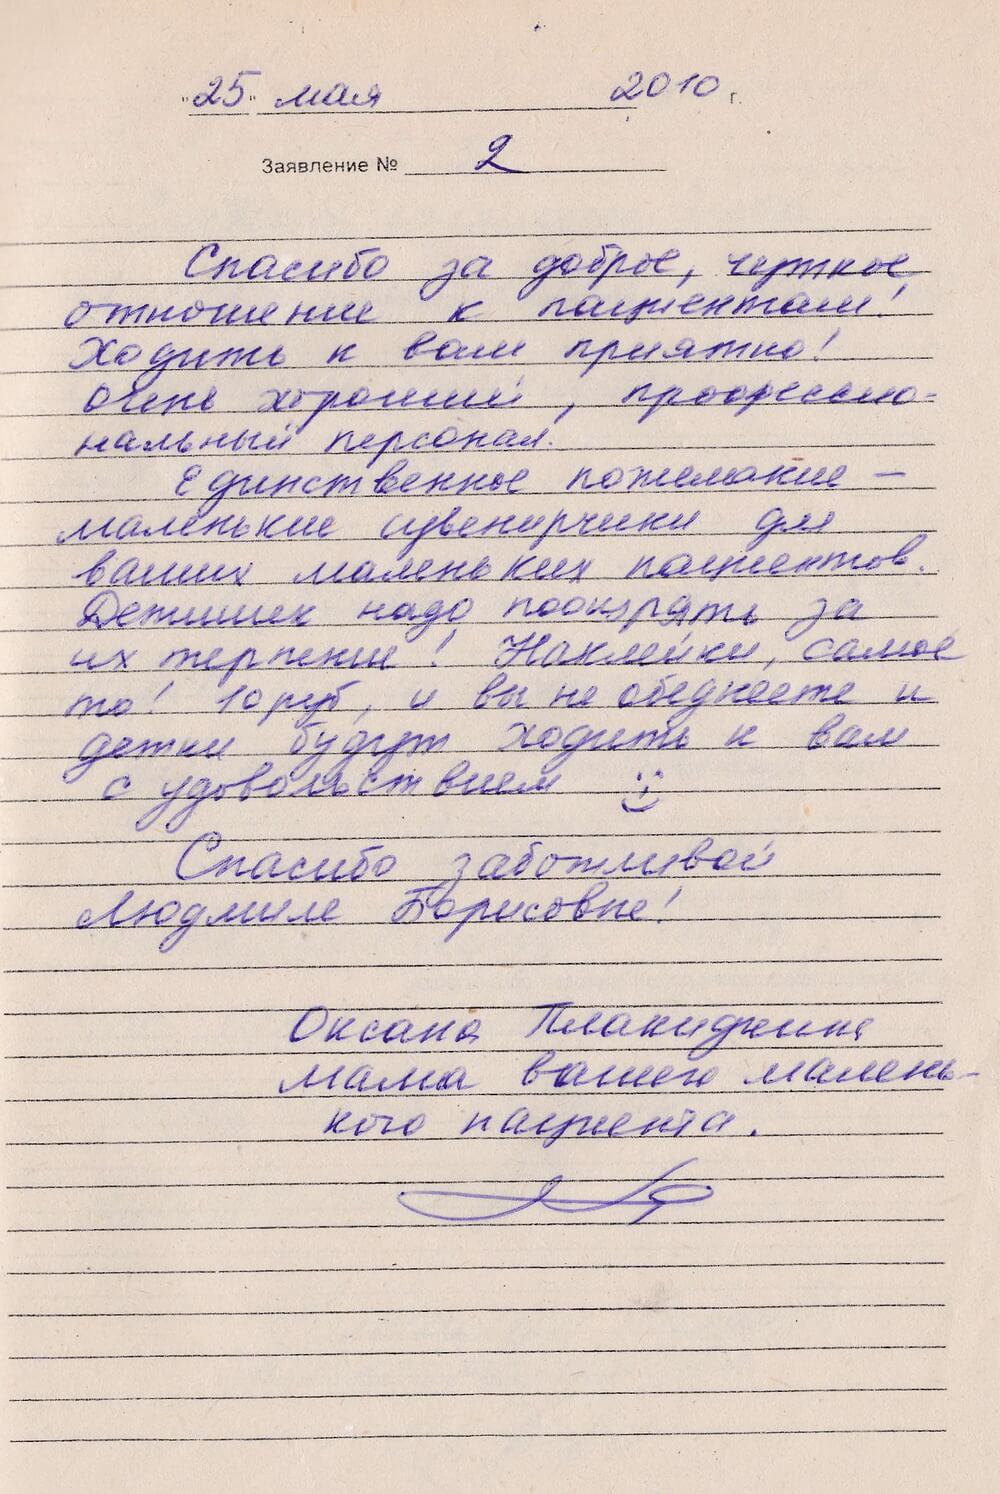 "25" мая 2010 г.
Заявление № 2
Спасибо за доброе, чуткое
отношение к пациентам!
Ходить к вам приятно!
Очень хороший, профессио-
нальный персонал.
Единственное пожелание -
маленькие сувенирчики для
ваших маленьких пациентов.
Детишек надо поощрять за
их терпение! Наклейки, самое
то! 10 руб, и вы не обеднеете и
детки будут ходить к вам
с удовольствием
Спасибо заботливой
Людмиле Борисовне!
Оксана
мама вашего малень-
кого пациента.